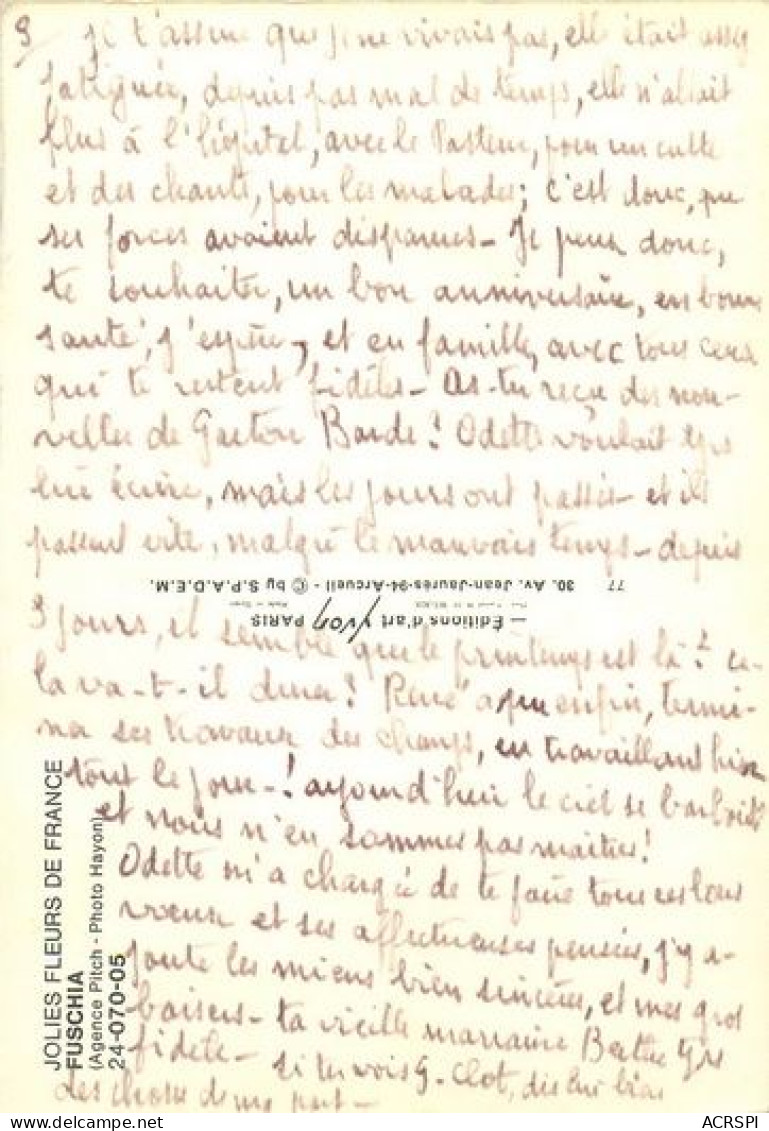 3
Je t'assure que je ne vivais pas, elle était assez
fatiguée, depuis pas mal de temps, elle n'allait
plus à l'hôpital, avec le Pasteur, pour un culte
et des chants, pour les malades; c'est donc, que
ses forces avaient disparues - Je peux donc,
te souhaiter, un bon anniversaire, en bonne
santé, j'espère, et en famille, avec tous ceux
qui te restent fidèles - As-tu reçu des nou-
velles de Gaston Barde? Odette voulait
lui écrire, mais les jours ont passés - et ils
passent vite, malgré le mauvais temps - depuis
77 30. Av. Jean-Jaurès-94-Arcueil - © by S.P.A.D.E.M.
— Éditions d'art Yvon PARIS
3 jours, il semble que le printemps est là? ce-
la va-t-il durer? René a pu enfin, termi-
ner ses travaux des champs, en travaillant
tout le jour -! aujourd'hui le ciel se barbouille
et nous n'en sommes pas maîtres!
Odette m'a chargée de te faire tous ses bons
vœux et ses affectueuses pensées, j'y a-
joute les miens bien sincères, et mes gros
baisers - ta vieille marraine Berthe
fidèle - si tu vois G. Clot, dis lui bien
des choses de ma part -
JOLIES FLEURS DE FRANCE
FUSCHIA
(Agence Pitch - Photo Hayon)
24-070-05
ACRSPI